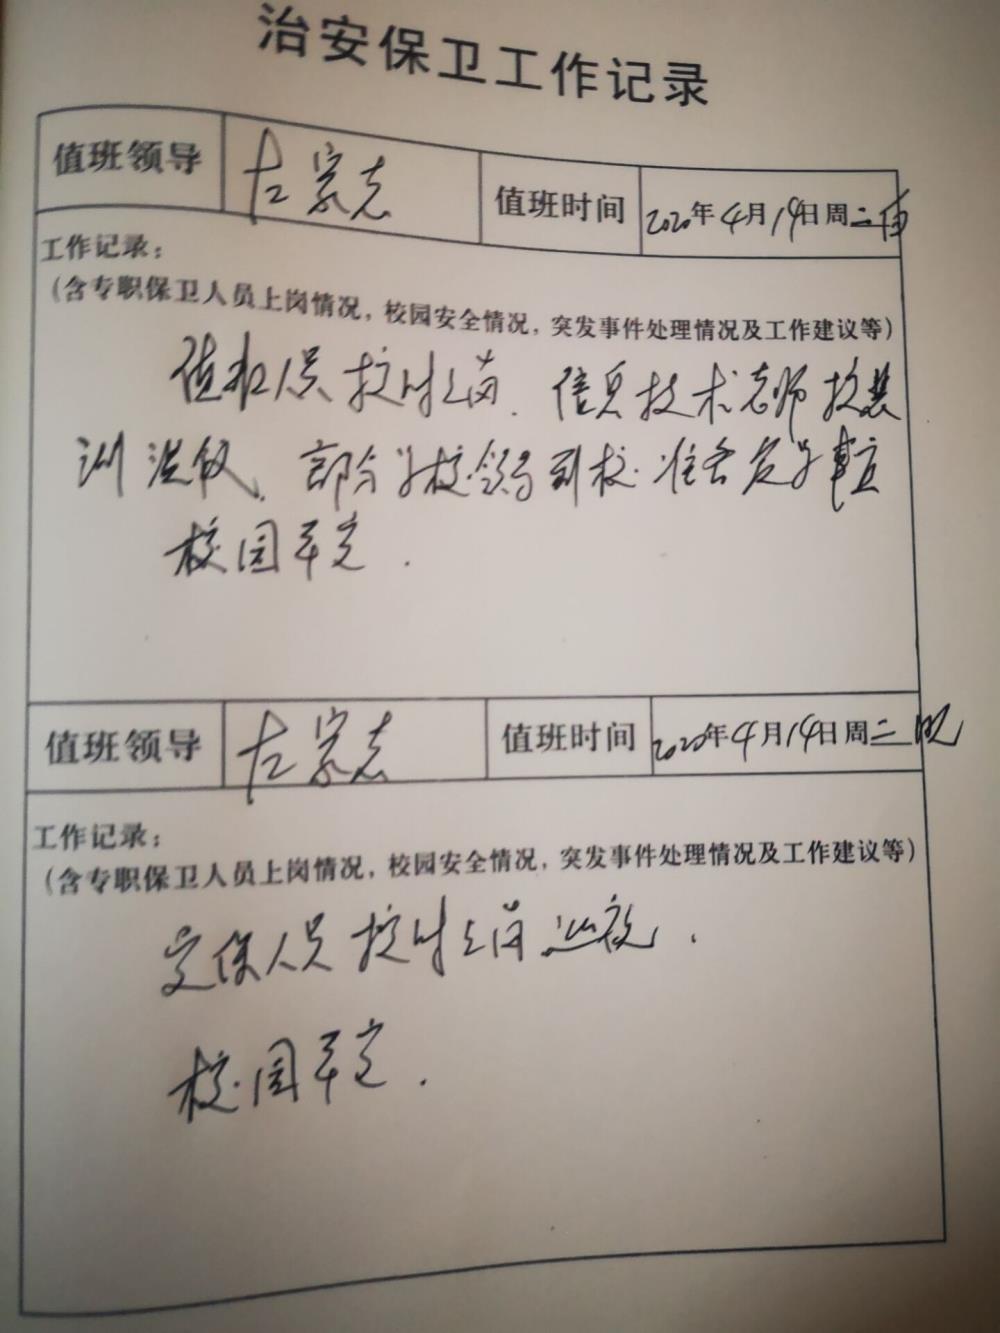 治安保卫工作记录
值班领导 左家志 值班时间 2020年4月14日周二
工作记录：
（含专职保卫人员上岗情况，校园安全情况，突发事件处理情况及工作建议等）
值班人员按时上岗．信息技术老师按
训 部分学校领导到校准备 事宜
校园平安．
值班领导 左家志 值班时间 2020年4月14日周二晚
工作记录：
（含专职保卫人员上岗情况，校园安全情况，突发事件处理情况及工作建议等）
安保人员按时上岗巡夜．
校园平安．